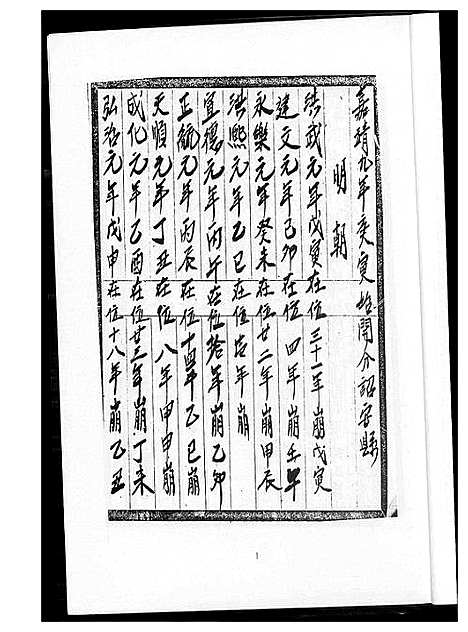 嘉靖九年庚寅始開介詔安縣
明朝
洪武元年戊寅在位三十一年崩戊寅
建文元年己卯在位四年崩壬午
永樂元年癸未在位廿二年崩甲辰
洪熙元年乙巳在位 年崩
宣德元年丙午在位拾年崩乙卯
正統元年丙辰在位十四年乙巳崩
天順元年丁丑在位八年甲申崩
成化元年乙酉在位廿三年崩丁未
弘治元年戊申在位十八年崩乙丑
1